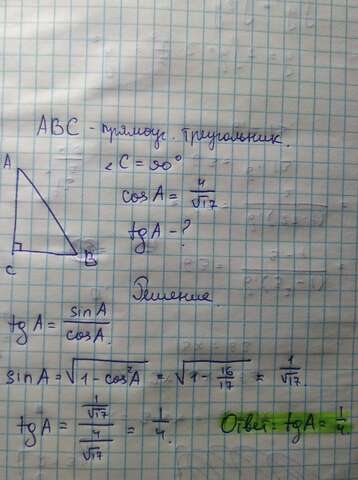 ABC - прямоуг. треугольник.
A
∠C = 90°
cosA = 4/√17
tgA - ?
C
B
Решение.
tgA = sinA/cosA.
sinA = √(1 - cos²A) = √(1 - 16/17) = 1/√17
tgA = (1/√17)/(4/√17) = 1/4. Ответ: tgA = 1/4